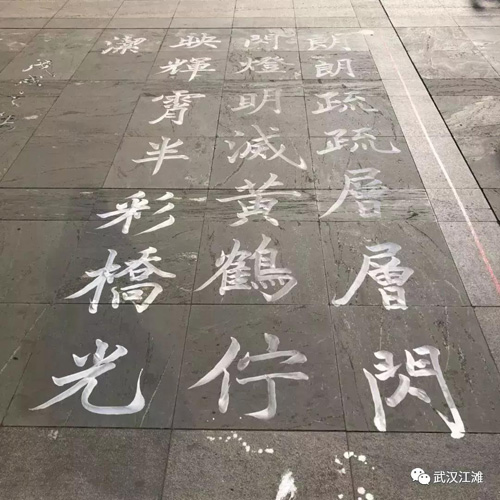 朗朗疏疏層層閃
閃燈明滅黄鶴佇
映輝霄半彩橋光
潔
武汉江滩